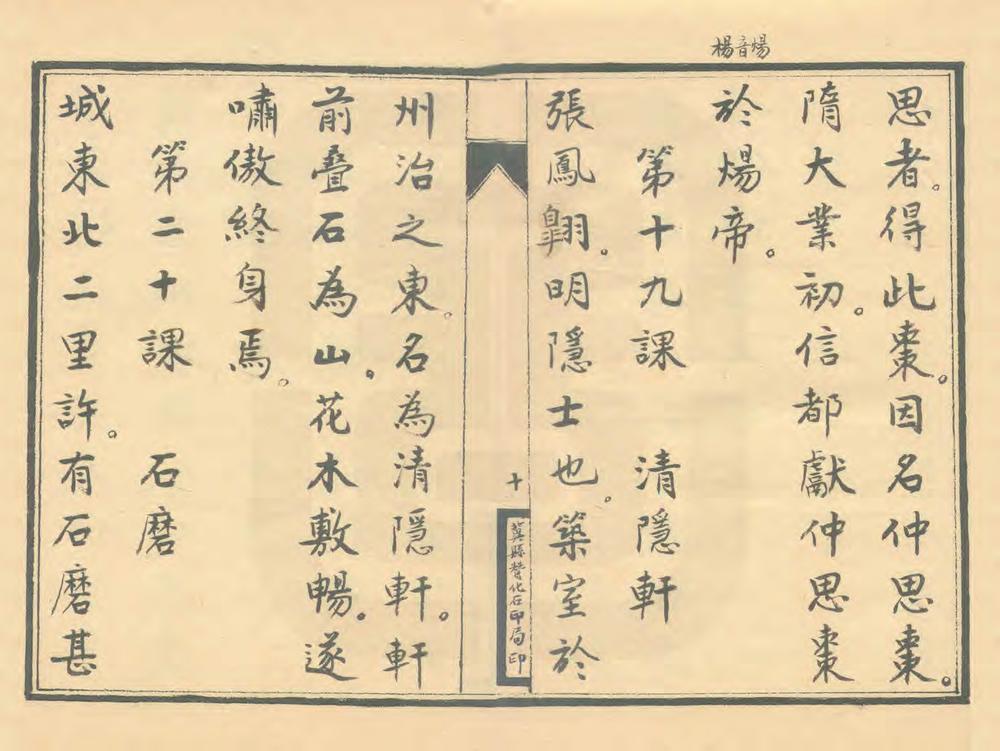 煬音楊
思者。得此棗。因名仲思棗。
隋大業初。信都獻仲思棗
於煬帝。
第十九課　清隱軒
張鳳翶。明隱士也。築室於
十
冀縣贊化石印局印
州治之東。名為清隱軒。軒
前叠石為山。花木敷暢。遂
嘯傲終身焉。
第二十課　石磨
城東北二里許。有石磨甚